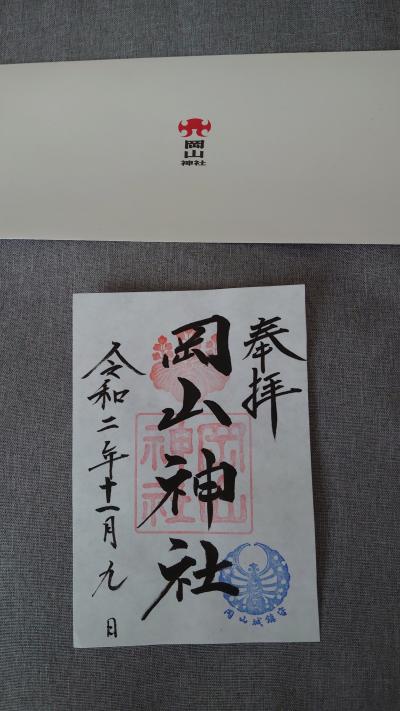 岡山
神社
奉拝
岡山神社
岡山
神社
岡山城鎮守
令和二年十一月九日